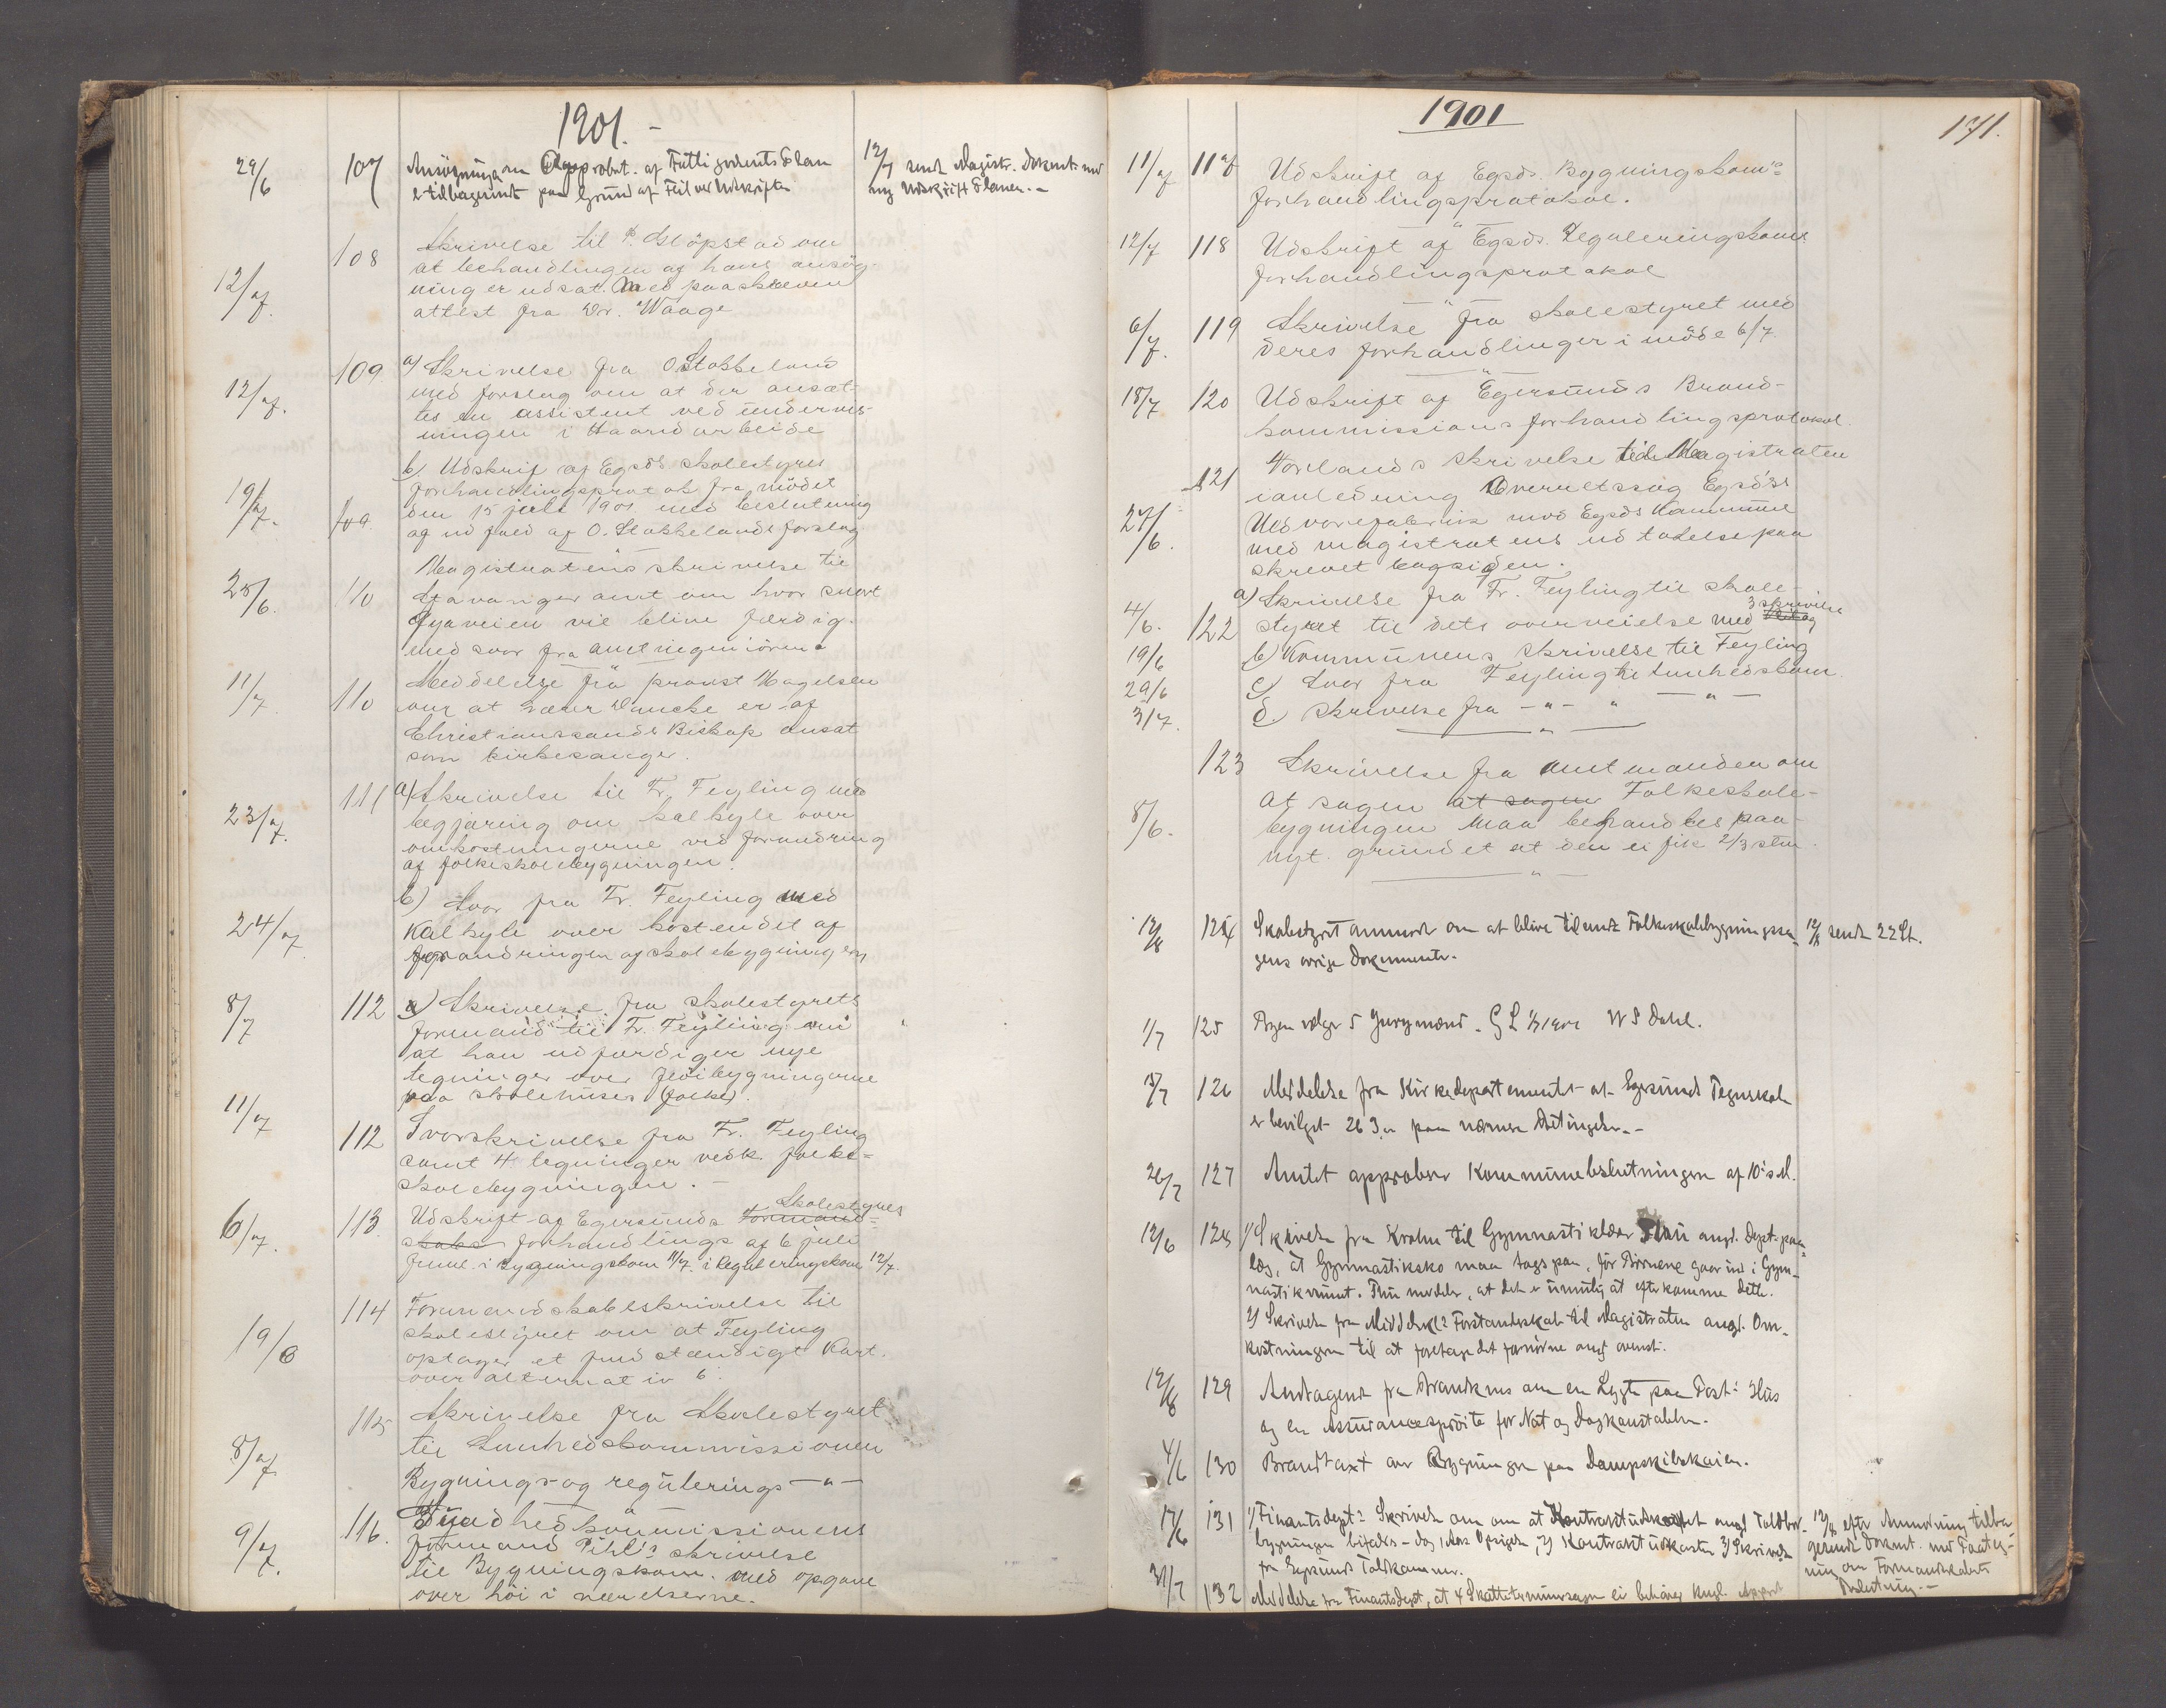 1901.
29/6 107 Ansögning om Approbat. af Fattigvæsenets Plan 12/7 sendt Magistr. Dokument. med
er tilbagesendt paa Grund af Feil ved Udskriften ny Udskrift Planen.-
12/7. 108 Skrivelse til P. Glöpstad om
at behandlingen af hans ansög-
ning er udsat. Med paaskreven
attest fra Dr. Waage
12/7. 109 a) Skrivelse fra O Stabbeland
med forslag om at der ansæt-
tes en assistent ved undervis-
ningen i Haandarbeide
b) Udskrif af Egsds skolestyres
forhandlingsprotok fra mödet
19/7. 109 den 15 juli 1901 med beslutning
af O. Stabbelands forslag
Magistratens skrivelse til
25/6. 110 Stavanger amt om hvor snart
Gyaveien vil blive færdig.
med svar fra amtingeniören
11/7. 110 Meddelelse fra provst Magelsen
om at Lærer er af
Christianssands Biskop ansat
som kirkesanger.
23/7. 111 a) Skrivelse til Fr. Feyling med
begjæring om kalkyle over
omkostningerne ved forandring
af folkeskolebygningen.
24/7. b) Svar fra Fr. Feyling med
Kalkyle over kostendet af
forandringen af skolebygningen
8/7 112 a) Skrivelse fra skolestyrets
formand til Fr. Feyling om
at han udfærdiger nye
tegninger over
11/7 paa skolehuset (folke).
112 Svarskrivelse fra Fr. Feyling
samt 4 tegninger vedk. folke-
skolebygningen. -
6/7. 113. Udskrift af Egersunds Formand- Skolestyres
skabs forhandlings af 6 juli
i bygningskom 11/7 i Reguleringskom 12/7.
114 Formandskabelskrivelse til
skolestyret om at Feyling
19/6 optager et fuldstændigt Kart.
over alternativ 6.
115 Skrivelse fra Skolestyret
til Sundhedskommissionen
8/7. Bygnings- og regulerings -"-
116. Sundhedskommissionens
9/7. formand Pihls skrivelse
til Bygningskom. med opgave
over höi i værelserne.
1901
171.
11/7 117 Udskrift af Egsds. Bygningskoms
forhandlingsprotokol.
12/7 118 Udskrift af Egsds. Reguleringskoms
forhandlingsprotokol
6/7. 119 Skrivelse fra skolestyret med
deres forhandlinger i möde 6/7.
18/7 120 Udskrift af Egersunds Brand-
kommissions forhandlingsprotokol.
121 skrivelse til Magistraten
ianledning Overretssag Egsds
27/6. Uldvarefabrik mod Egsds Kommune
med magistratens udtalelse paa
skrevet bagsiden.
4/6. 122 a) Skrivelse fra Fr. Feyling til skole-
styret til dets overveielse med 3 skrivelse
19/6 b) Kommunens skrivelse til Feyling
29/6 c) Svar fra Feyling til Sundhedskom.
3/7. d) Skrivelse fra -"- " -"-
123 Skrivelse fra amtmanden om
8/6. at sagen at sagen Folkeskole-
bygningen maa behandles paa-
nyt. grundet at den ei fik 2/3 stm.
12/8 124 Skolestyret anmoder om at blive tilsendt Folkeskolebygningssa- 12/8 sendt 22 St.
gens övrige Dokumenter.
1/7 125 Byen vælger 5 Jurymænd. W S Dahl.
5/7 126 Meddelelse fra Kirkedepartementet at Egersunds Tegneskole
er bevilget paa nærmere Betingelser.-
26/7 127 Amtet approberer Kommunebeslutningen af 10' s.M.
12/6 128 1) Skrivelse fra Krohn til Gymnastiklærer Thu angd. Dept. paa-
læg, at Gymnastiksko maa tages paa, för Börnene gaar ind i Gym-
nastikrummet. Thu meddeler, at det er umulig at efterkomme dette.
2) Skrivelse fra Middelskl's Forstanderskab til Magistraten angd. Om-
kostningerne til at foretage det fornödne angd ovenst.
12/8 129 Andragende fra om en Lygte paa Post: Hus
og en Assurancespröite for Nat og Dagkonstabler.
4/6 130 Brandtaxt over Bygningen paa Dampskibskaien.
17/6 131 1) Finantsdept's Skrivelse om at Kontraktudkastet angd Toldbod- 12/8 efter Anmodning tilba-
bygningen bifaldes - 2) Kontraktudkastet 3) Skrivelse gesendt Dokmt. med
fra Egersunds Toldkammer. om Formandskabets
31/7 132 Meddelelse fra Finantsdept, at 4 ei behöver Kngl. Beslutning.-